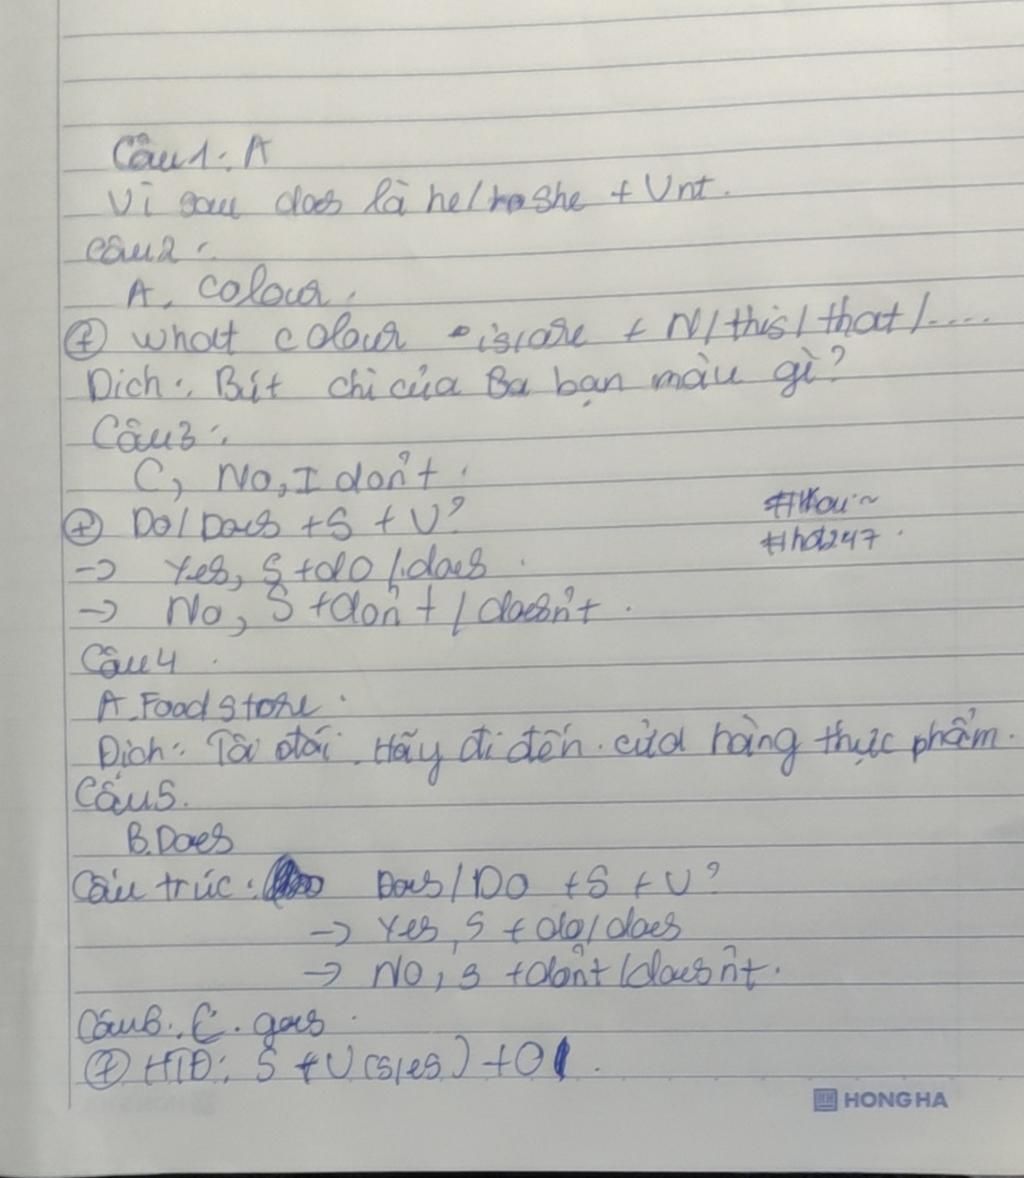 Câu 1: A
Vì sau does là he/she + Vnt.
Câu 2:
A. Colour.
(+) What colour is/are + N/this/that/....
Dịch: Bút chì của Ba bạn màu gì?
Câu 3:
C, No, I don't.
(+) Do/Does + S + V?
#thou~
#hd247.
-> Yes, S + do/does.
-> No, S + don't/doesn't.
Câu 4.
A. Food store.
Dịch: Tôi đói. Hãy đi đến cửa hàng thực phẩm.
Câu 5.
B. Does
Cấu trúc: Does/Do + S + V?
-> Yes, S + do/does
-> No, S + don't/doesn't.
Câu 6: C. goes.
(+) HTĐ: S + V(s/es) + O.
HONG HA